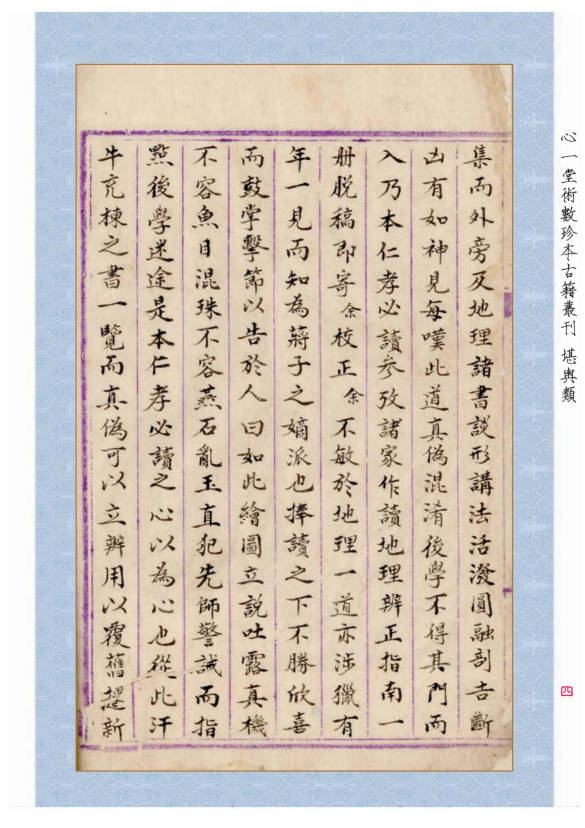 心一堂術數珍本古籍叢刊 堪輿類
集而外旁及地理諸書談形講法活潑圓融剖吉斷
凶有如神見每嘆此道真偽混淆後學不得其門而
入乃本仁孝必讀參攷諸家作讀地理辨正指南一
册脱稿即寄余校正余不敏於地理一道亦涉獵有
年一見而知為蔣子之嫡派也捧讀之下不勝欣喜
而鼓掌擊節以告於人曰如此繪圖立說吐露真機
不容魚目混珠不容燕石亂玉直犯先師警誡而指
點後學迷途是本仁孝必讀之心以為心也從此汗
牛充棟之書一覽而真偽可以立辨用以覆舊 新
四